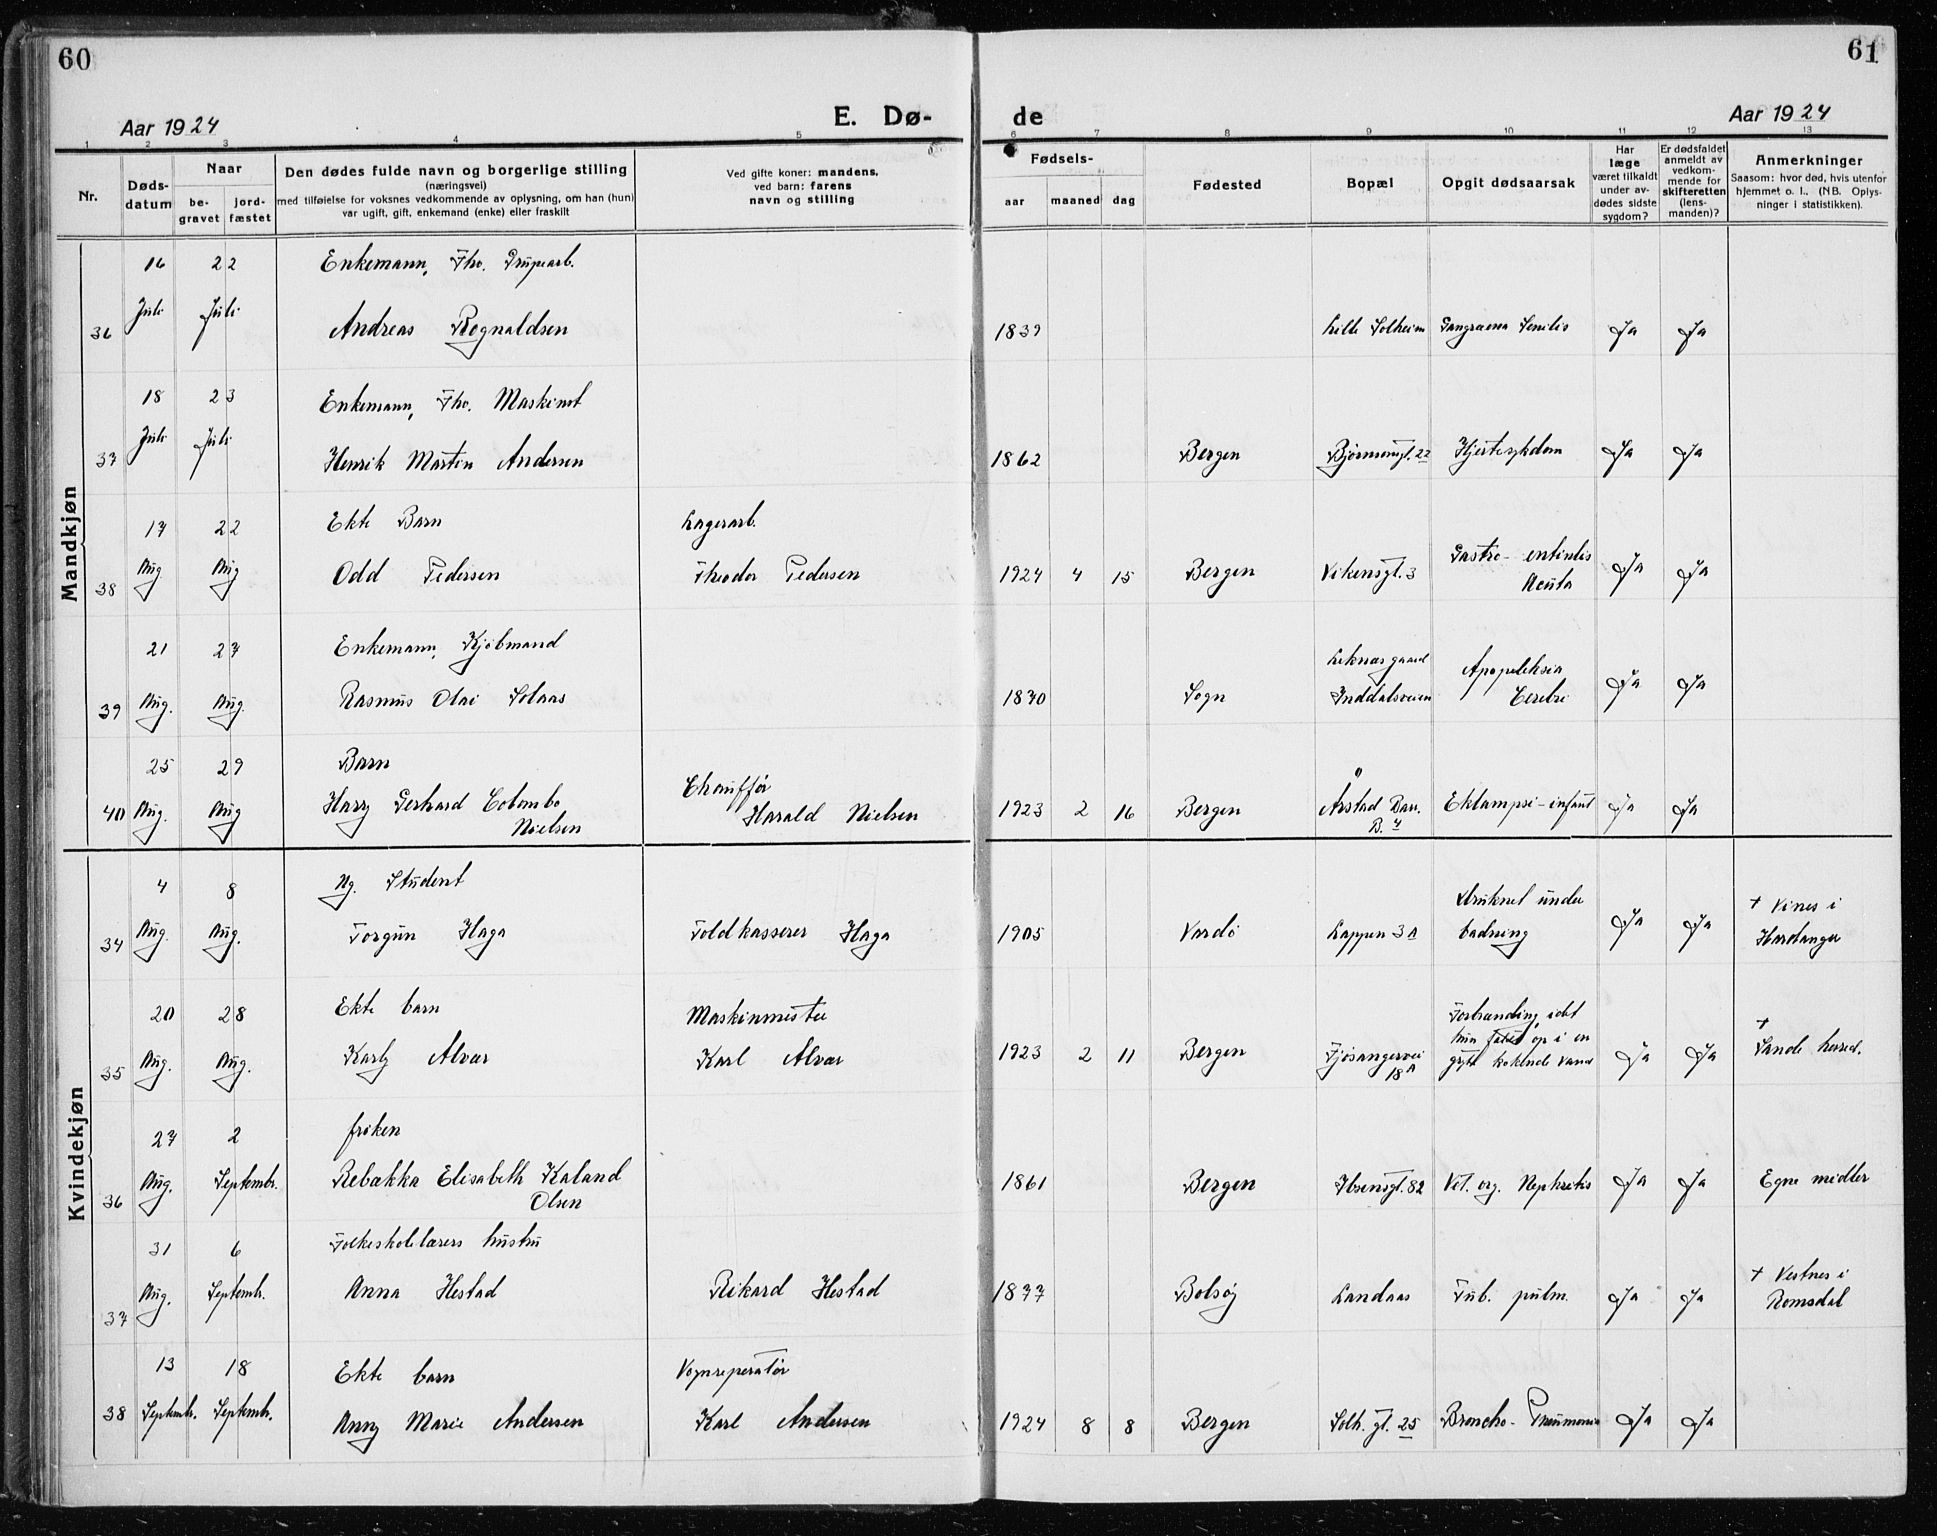 60
61
Aar 1924
E. Dø-
de
Aar 1924
1 2 3 4 5 6 7 8 9 10 11 12 13
Nr.
Døds-
datum
Naar
be-
gravet
jord-
fæstet
Den dødes fulde navn og borgerlige stilling
(næringsvei)
med tilføielse for voksnes vedkommende av oplysning, om han (hun)
var ugift, gift, enkemand (enke) eller fraskilt
Ved gifte koner: mandens,
ved barn: farens
navn og stilling
Fødsels-
aar maaned dag
Fødested
Bopæl
Opgit dødsaarsak
Har
læge
været tilkaldt
under av-
dødes sidste
sygdom?
Er dødsfaldet
anmeldt av
vedkom-
mende for
skifteretten
(lens-
manden)?
Anmerkninger
Saasom: hvor død, hvis utenfor
hjemmet o. l., (NB. Oplys-
ninger i statistikken).
Mandkjøn
16 22 Enkemann, Fhv. Grupearb.
36 Juli Juli Andreas Rognaldsen 1839 Lille Solheim Gangraena Senilis Ja Ja
18 23 Enkemann, Fhv. Maskinist
37 Juli Juli Henrik Martin Andersen 1862 Bergen Bjørnsonsgt. 22 Hjertesykdom Ja Ja
17 22 Ekte Barn Lagerarb.
38 Aug Aug Odd Pedersen Theodor Pedersen 1924 4 15 Bergen Vikensgt. 3 Gastro-enteritis Ja Ja
Acuta
21 27 Enkemann, Kjøbmand Leknæsgaard
39 Aug. Aug. Rasmus Olai Solaas 1870 Sogn Inddalsveien Apopeleksia Cerebri Ja Ja
25 29 Barn Chauffør
40 Aug. Aug Harry Gerhard Colombo Harald Nielsen 1923 2 16 Bergen Årstad Bar. Eklampsi-infant Ja Ja
Nielsen B. 4
Kvindekjøn
4 8 Ug. Student Druknet under + Vines i
34 Aug. Aug. Torgun Haga Toldkasserer Haga 1905 Vardö Lappen 3A badning Ja Ja Hardanger
20 28 Ekte barn Maskinmester Forbrænding, idet +
hun faldt op i en
35 Aug. Aug. Karly Alvær Karl Alvær 1923 2 11 Bergen Fjøsangervei gryte kokende vand Ja Ja Sande herred.
18A
27 2 frøken
36 Aug. Septembr. Rebækka Elisabeth Kaland 1861 Bergen Ibsensgt. 82 Vit. org. Nephritis Ja Ja Egne midler
Olsen
31 6 Folkeskolelærers hustru + Vestnes i
37 Aug. Septembr. Anna Hestad Rikard Hestad 1877 Bolsøy Landaas Tub. pulm. Ja Ja Romsdal
13 18 Ekte barn Vognreperatør
38 Septembr. Septembr. Anny Marie Andersen Karl Andersen 1924 8 8 Bergen Solh. gt. 25 Broncho-Pneumonia Ja Ja